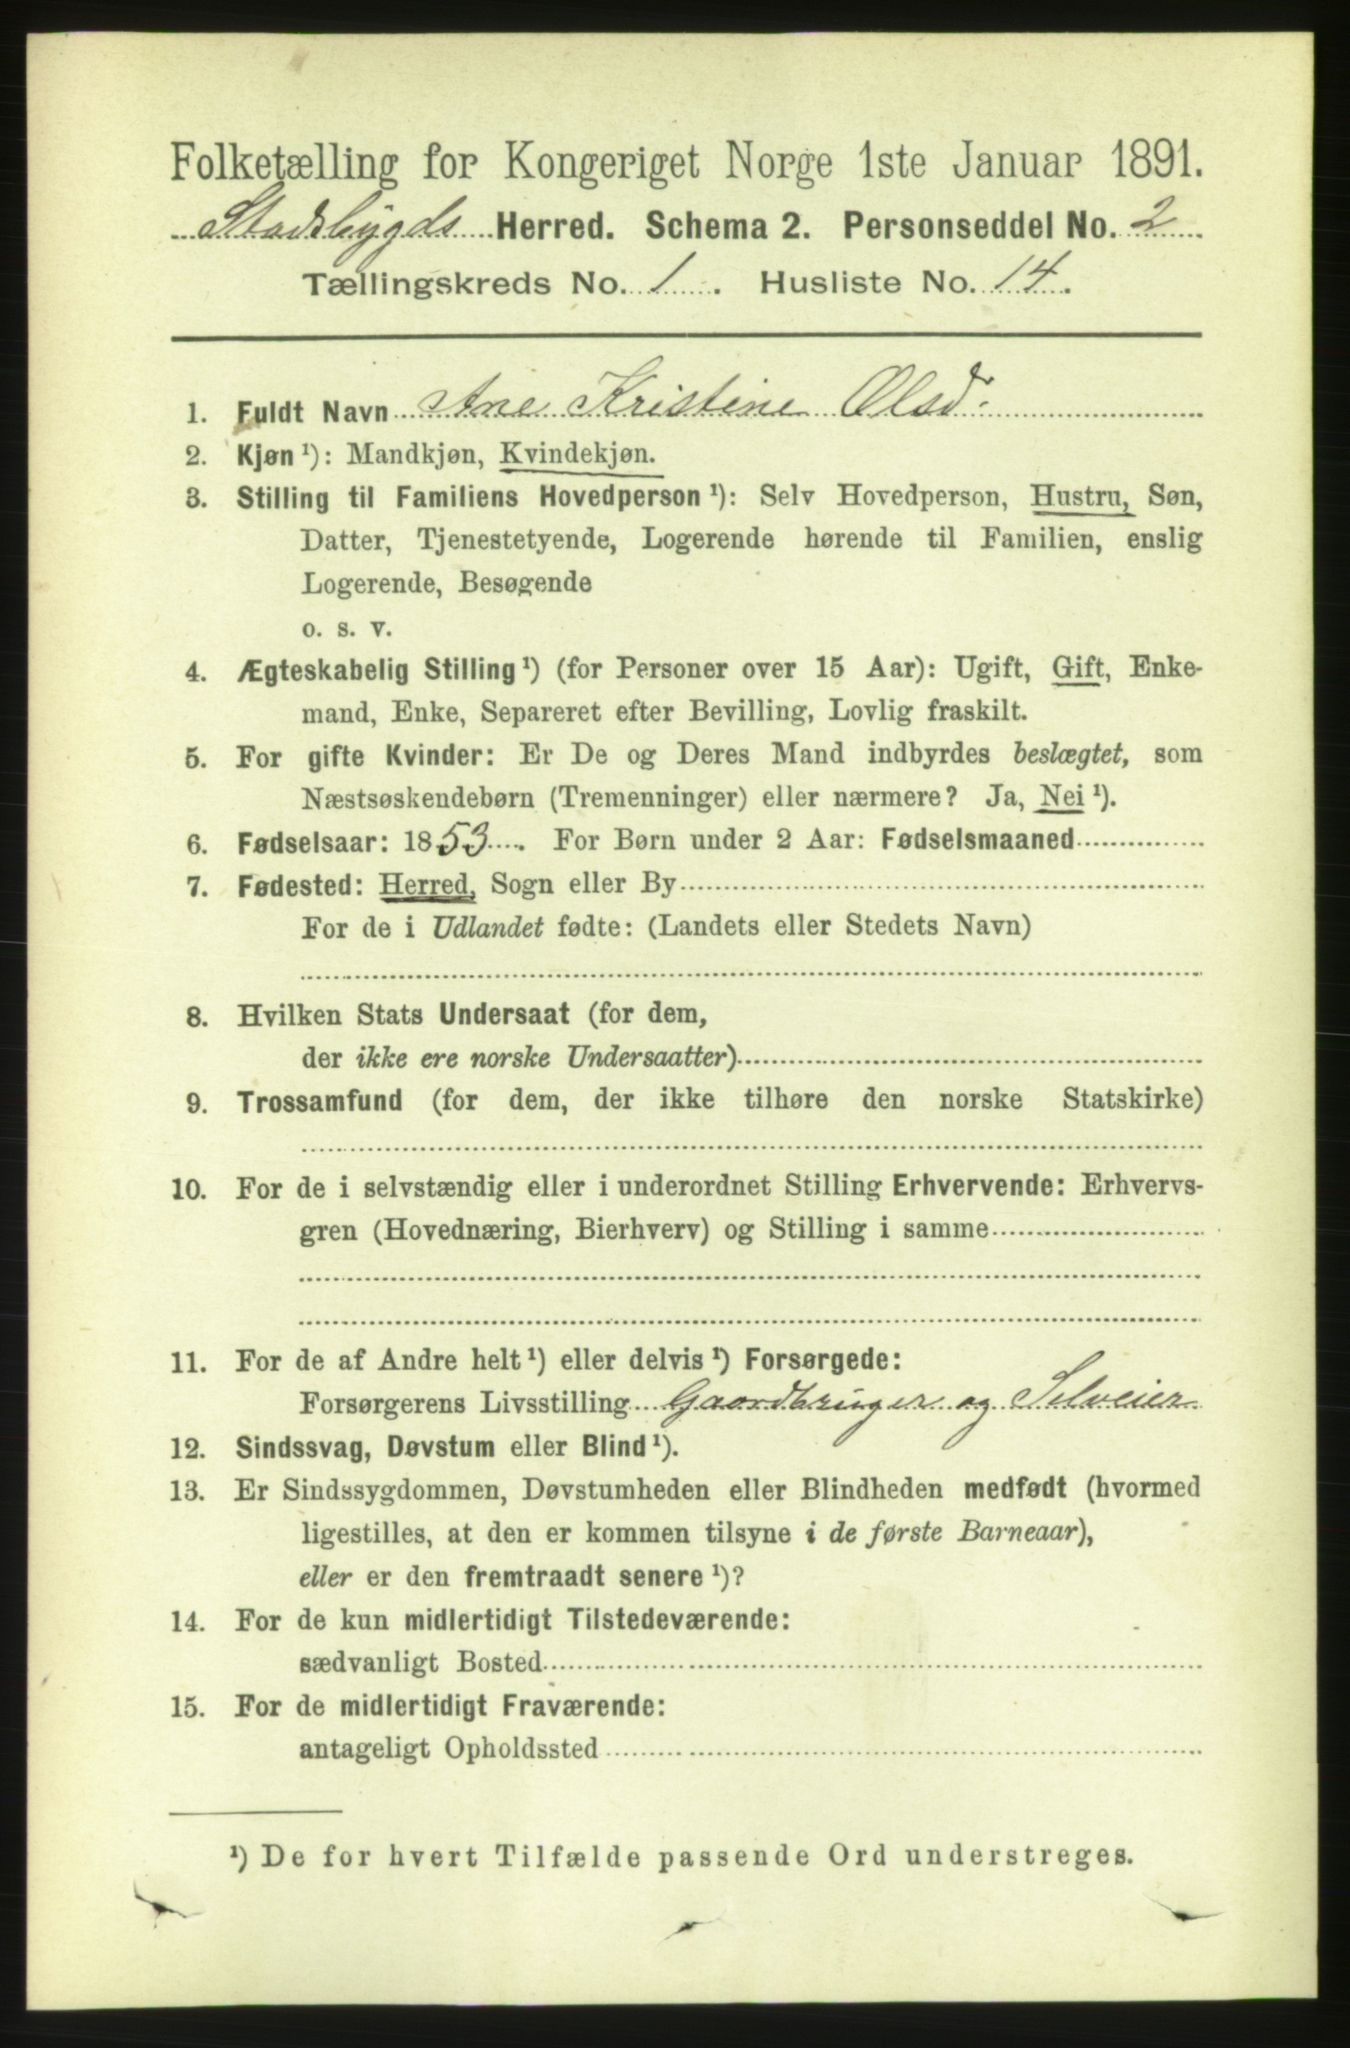 Folketælling for Kongeriget Norge 1ste Januar 1891.
Stadsbygds Herred. Schema 2. Personseddel No. 2
Tællingskreds No. 1. Husliste No. 14.
1. Fuldt Navn Ane Kristine Olsdr.
2. Kjøn ¹): Mandkjøn, Kvindekjøn.
3. Stilling til Familiens Hovedperson ¹): Selv Hovedperson, Hustru, Søn,
Datter, Tjenestetyende, Logerende hørende til Familien, enslig
Logerende, Besøgende
o. s. v.
4. Ægteskabelig Stilling ¹) (for Personer over 15 Aar): Ugift, Gift, Enke-
mand, Enke, Separeret efter Bevilling, Lovlig fraskilt.
5. For gifte Kvinder: Er De og Deres Mand indbyrdes beslægtet, som
Næstsøskendebørn (Tremenninger) eller nærmere? Ja, Nei ¹).
6. Fødselsaar: 1853. For Børn under 2 Aar: Fødselsmaaned
7. Fødested: Herred, Sogn eller By
For de i Udlandet fødte: (Landets eller Stedets Navn)
8. Hvilken Stats Undersaat (for dem,
der ikke ere norske Undersaatter)
9. Trossamfund (for dem, der ikke tilhøre den norske Statskirke)
10. For de i selvstændig eller i underordnet Stilling Erhvervende: Erhvervs-
gren (Hovednæring, Bierhverv) og Stilling i samme
11. For de af Andre helt ¹) eller delvis ¹) Forsørgede:
Forsørgerens Livsstilling Gaardbruger og Selveier
12. Sindssvag, Døvstum eller Blind ¹).
13. Er Sindssygdommen, Døvstumheden eller Blindheden medfødt (hvormed
ligestilles, at den er kommen tilsyne i de første Barneaar),
eller er den fremtraadt senere ¹)?
14. For de kun midlertidigt Tilstedeværende:
sædvanligt Bosted
15. For de midlertidigt Fraværende:
antageligt Opholdssted
¹) De for hvert Tilfælde passende Ord understreges.